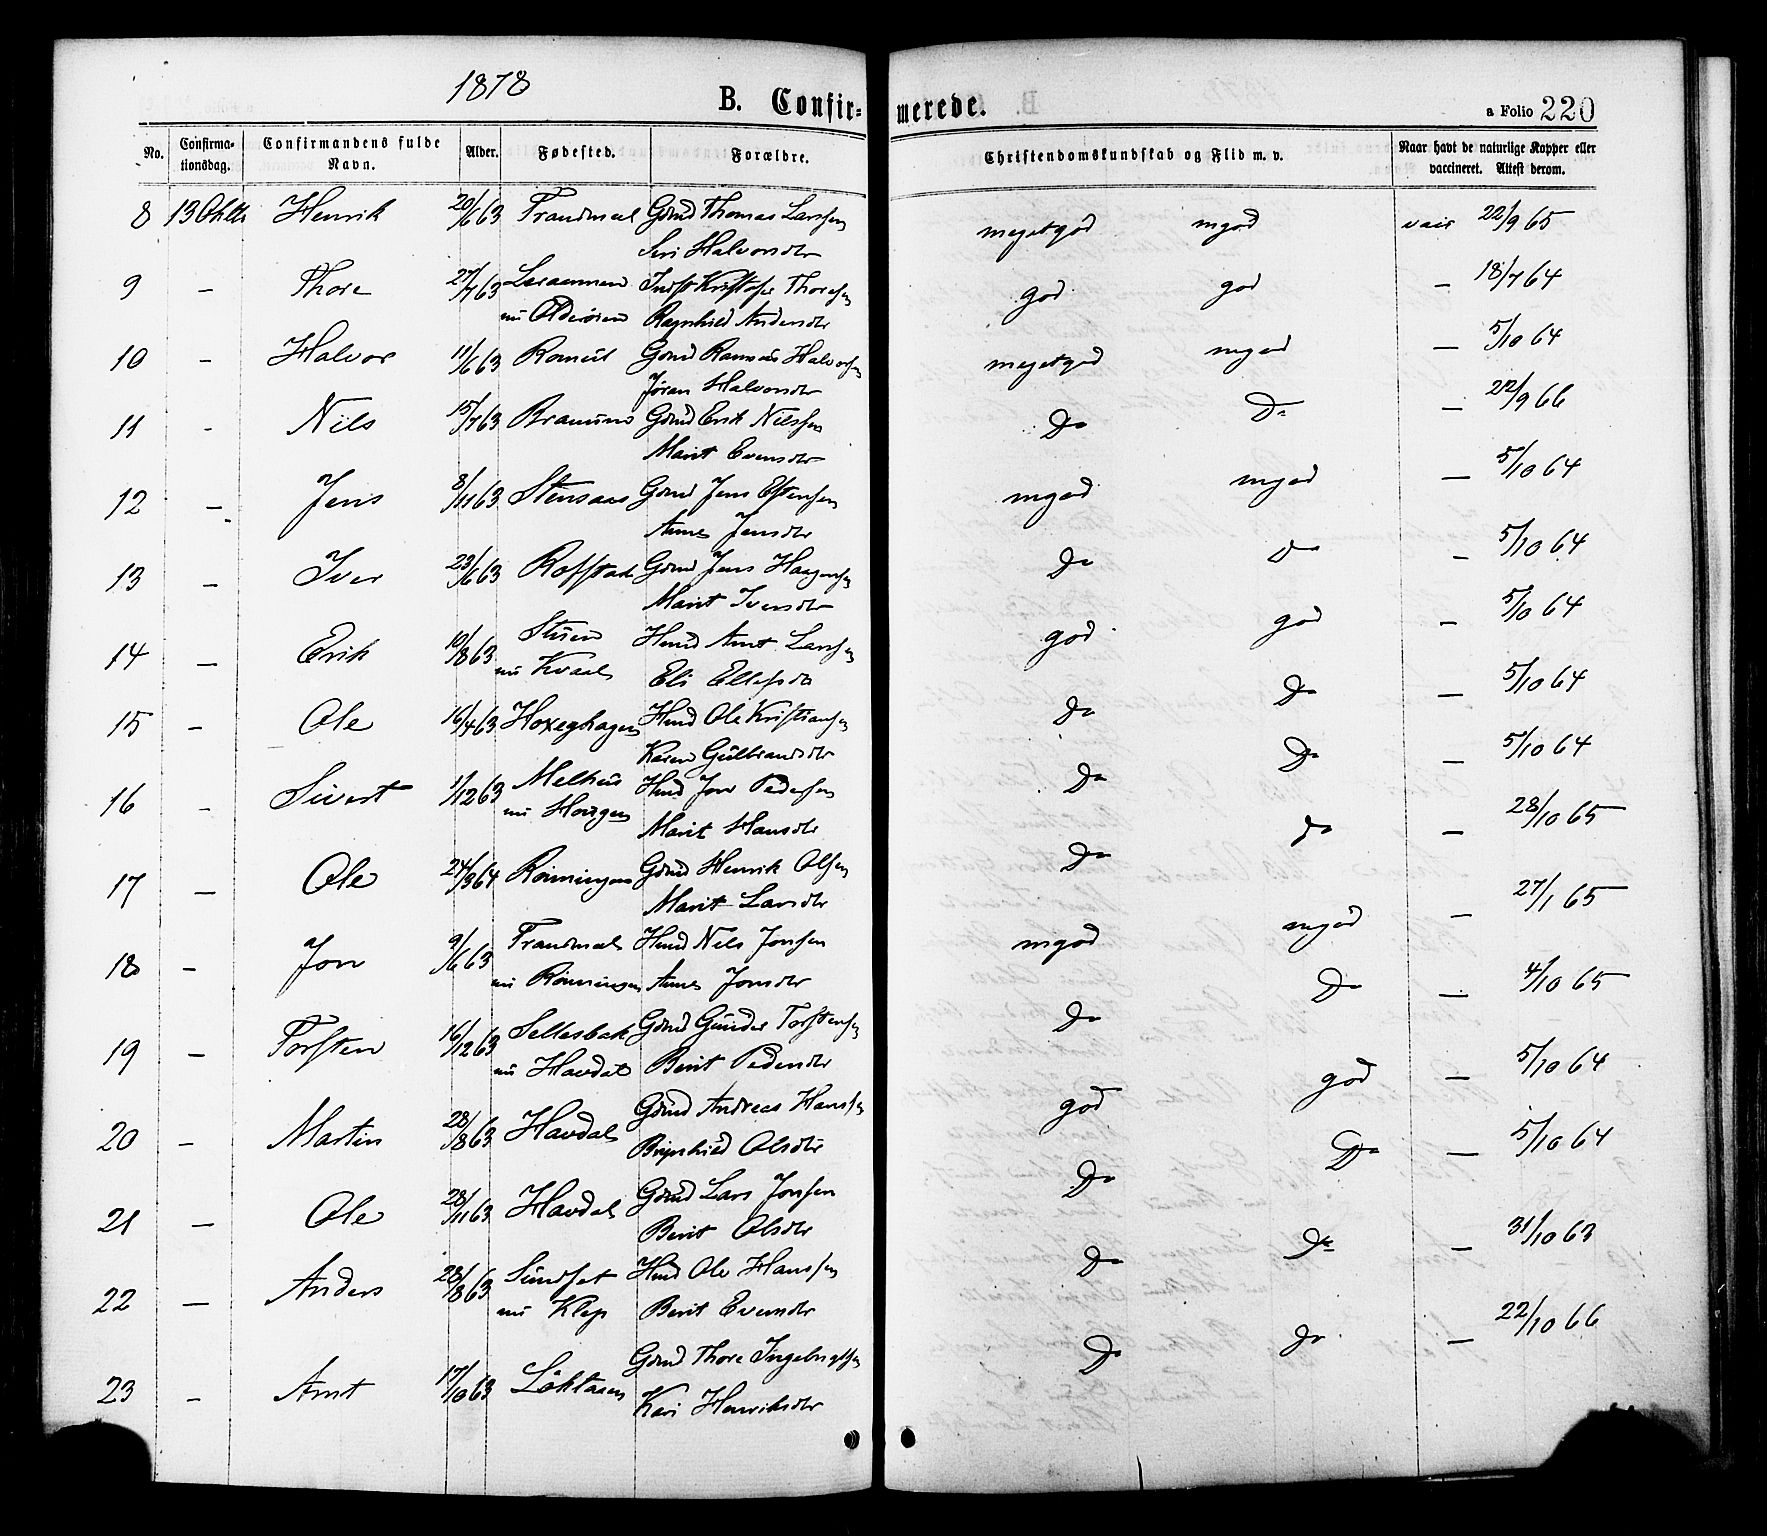 1878
B. Confir-
merede.
a Folio 220
No. Confirma-tionsdag. Confirmandens fulde Navn. Alder. Fødested. Forældre. Christendomskundskab og Flid m. v. Naar havt de naturlige Kopper eller vaccineret. Attest derom.
8 13 Oktb Henrik 20/6 63 Trandmæl Gmd Thomas Larssen meget god mgod vacc 22/9 65
Siri Halvorsdtr
9 - Thore 27/7 63 Indst Kristofer Thoresen god god - 18/7 64
nu Olderøien Ragnhild Andersdtr
10 - Halvor 11/6 63 Gmd Rasmus Halvorsen meget god mgod - 5/10 64
Jøran Halvorsdtr
11 - Nils 15/7 63 Gmd Erik Nilssen Do Do - 22/9 66
Marit Evensdtr
12 - Jens 8/11 63 Stensaas Gmd Jens Estensen mgod mgod - 5/10 64
Anne Jensdtr
13 - Iver 23/6 63 Rofstad Gmd Jens Haagensen Do Do - 5/10 64
Marit Iversdtr
14 - Erik 10/8 63 Stuen Hmd Arnt Larssen god god - 5/10 64
nu Kvaal Eli Ellefsdtr
15 - Ole 16/4 63 Hoxeghagen Hmd Ole Kristiansen Do Do - 5/10 64
Karen Gulbrandsdtr
16 - Sivert 1/12 63 Melhus Hmd Jon Pedersen Do Do - 5/10 64
nu Hougen Marit Hansdtr
17 - Ole 24/3 64 Rønningen Gmd Henrik Olsen Do do - 28/10 65
Marit Larsdtr
18 - Jon 9/6 63 Trandmæl Hmd Nils Jonsen mgod mgod - 27/1 65
nu Rønningen Anne Jonsdtr
19 - Torsten 16/12 63 Sellesbak Gmd Gunder Torstensen Do Do - 4/10 65
nu Havdal Berit Pedersdtr
20 - Martin 28/8 63 Havdal Gmd Andreas Hanssen god god - 5/10 64
Brynhild Olsdtr
21 - Ole 28/11 63 Havdal Gmd Lars Jonsen Do Do - 5/10 64
Berit Olsdtr
22 - Anders 28/8 63 Sundset Hmd Ole Hanssen Do Do - 31/10 63
nu Klep Berit Evensdtr
23 - Arnt 17/10 63 Løktaasen Gmd Thore Ingebrigtsen Do do - 22/10 66
Kari Henriksdtr